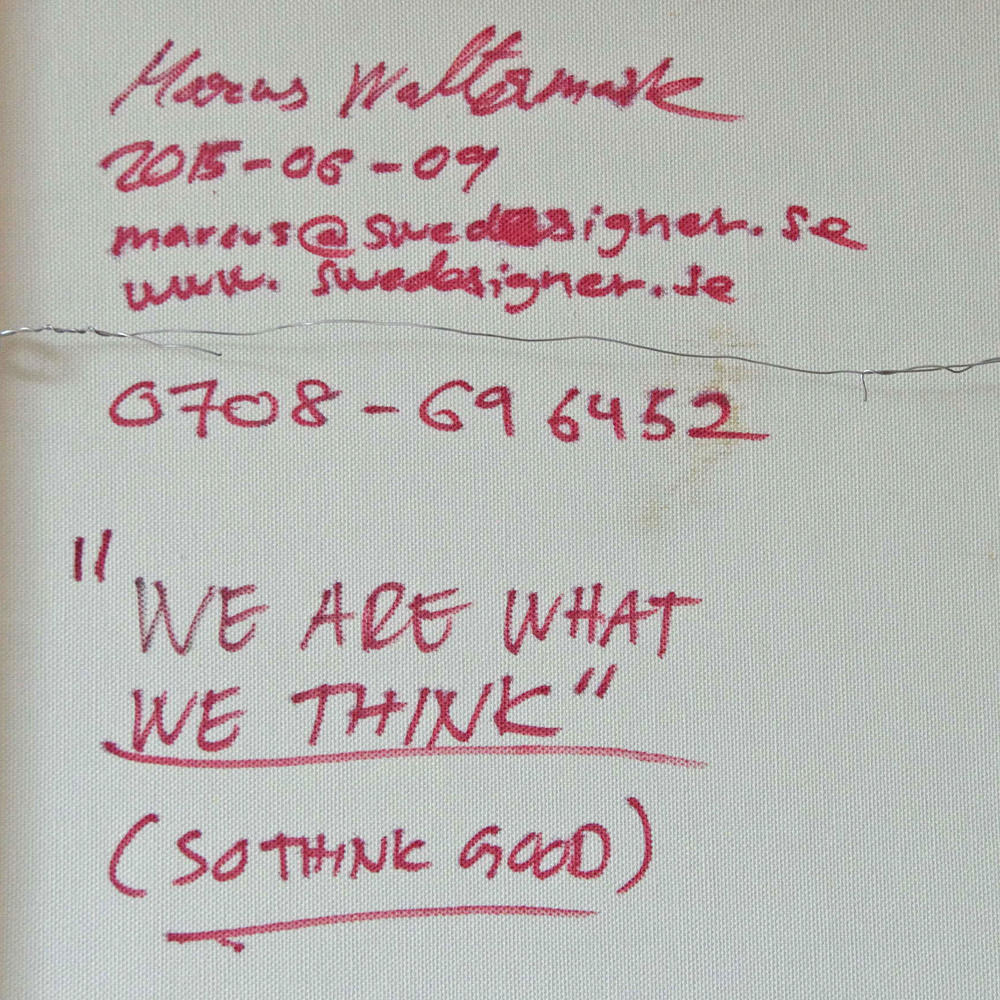 Marcus Waltermark
2015-06-09
marcus@swedesigner.se
www.swedesigner.se
0708-69 6452
"WE ARE WHAT
WE THINK"
(SO THINK GOOD)